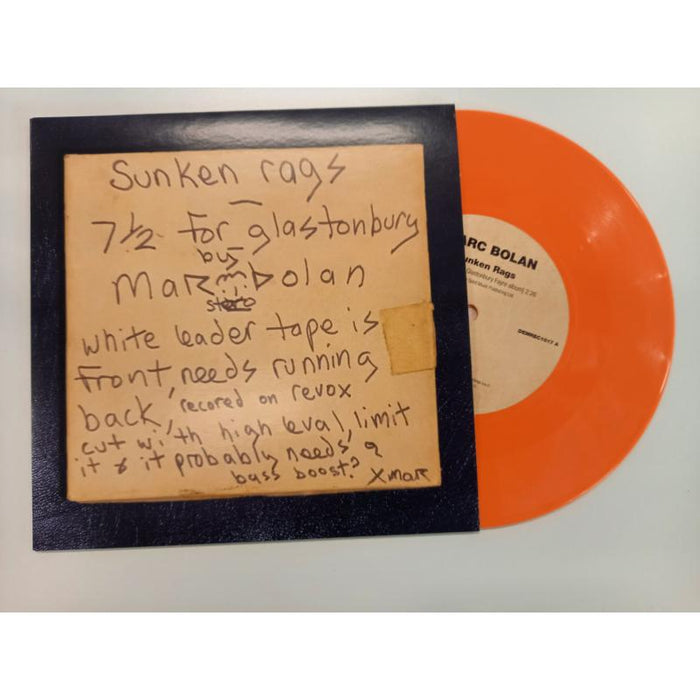 Sunken rags
7½ for glastonbury
by
Marc Bolan
stereo
white leader tape is
front, needs running
back, recored on revox
cut with high leval, limit
it & it probably needs a
bass boost? X marc
ARC BOLAN
unken Rags
Glastonbury Fayre album) 2.26
DEMREC1017 A